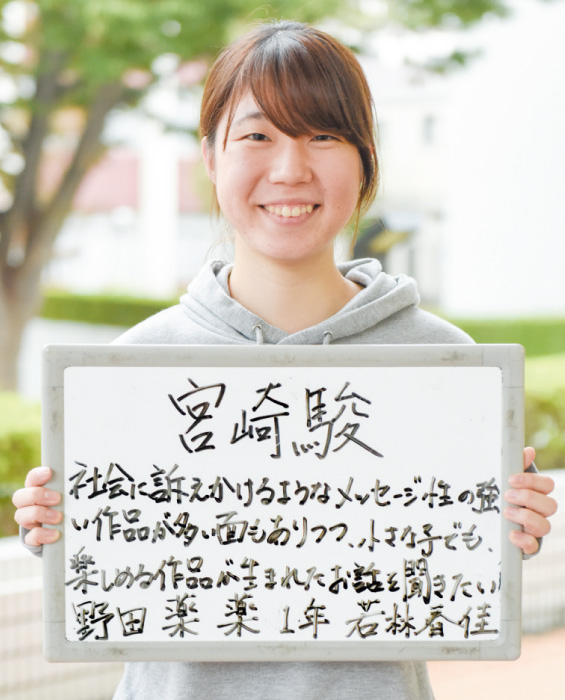 宮崎駿
社会に訴えかけるようなメッセージ性の強
い作品が多い面もありつつ、小さな子でも、
楽しめる作品が生まれたお話を聞きたい!
野田 薬 薬 1年 若林春佳